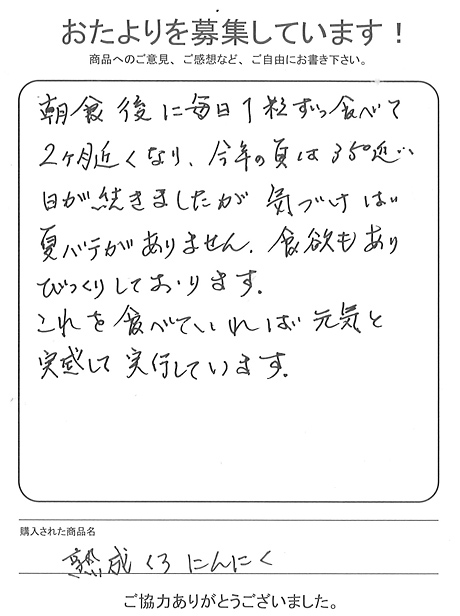 おたよりを募集しています！
商品へのご意見、ご感想など、ご自由にお書き下さい。
朝食後に毎日1粒ずつ食べて
2ヶ月近くなり、今年の夏は35°近い
日が続きましたが 気づけば
夏バテがありません。食欲もあり
びっくりしております。
これを食べていれば元気と
実感して実行しています。
購入された商品名
熟成くろにんにく
ご協力ありがとうございました。